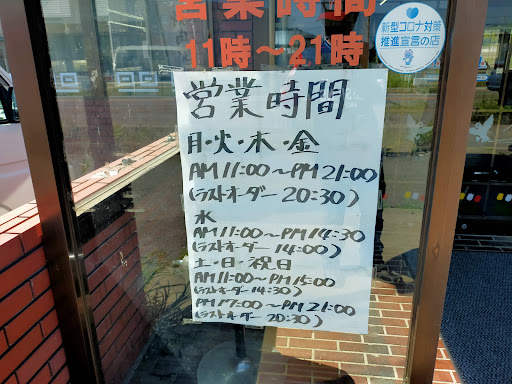 営業時間
11時～21時
新型コロナ対策
推進宣言の店
営業時間
月・火・木・金
AM 11:00～PM 21:00
(ラストオーダー 20:30)
水
AM 11:00～PM 14:30
(ラストオーダー 14:00)
土・日・祝日
AM 11:00～PM 15:00
(ラストオーダー 14:30)
PM 17:00～PM 21:00
(ラストオーダー 20:30)